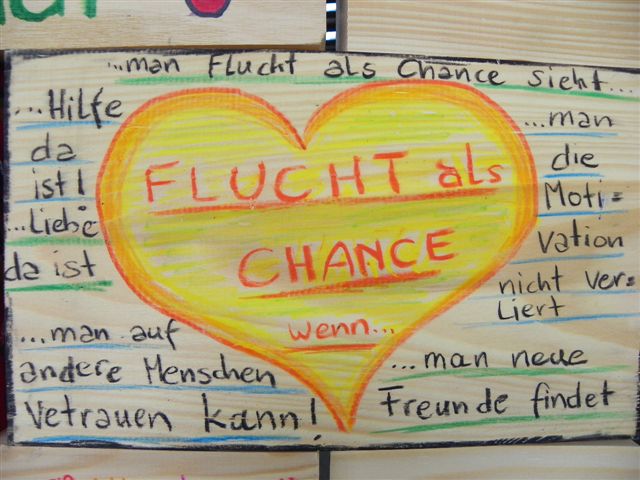 ...man Flucht als Chance sieht...
...Hilfe
da
ist!
...Liebe
da ist
FLUCHT als
CHANCE
wenn...
...man
die
Moti=
vation
nicht ver=
liert
...man auf
andere Menschen
Vetrauen kann!
...man neue
Freunde findet